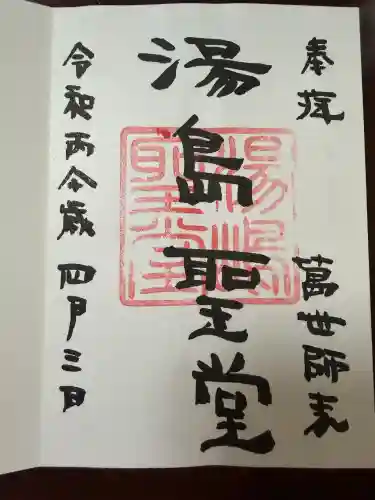 奉拝　萬世師表
湯島聖堂
湯嶋
聖堂
令和丙午歳 四月三日